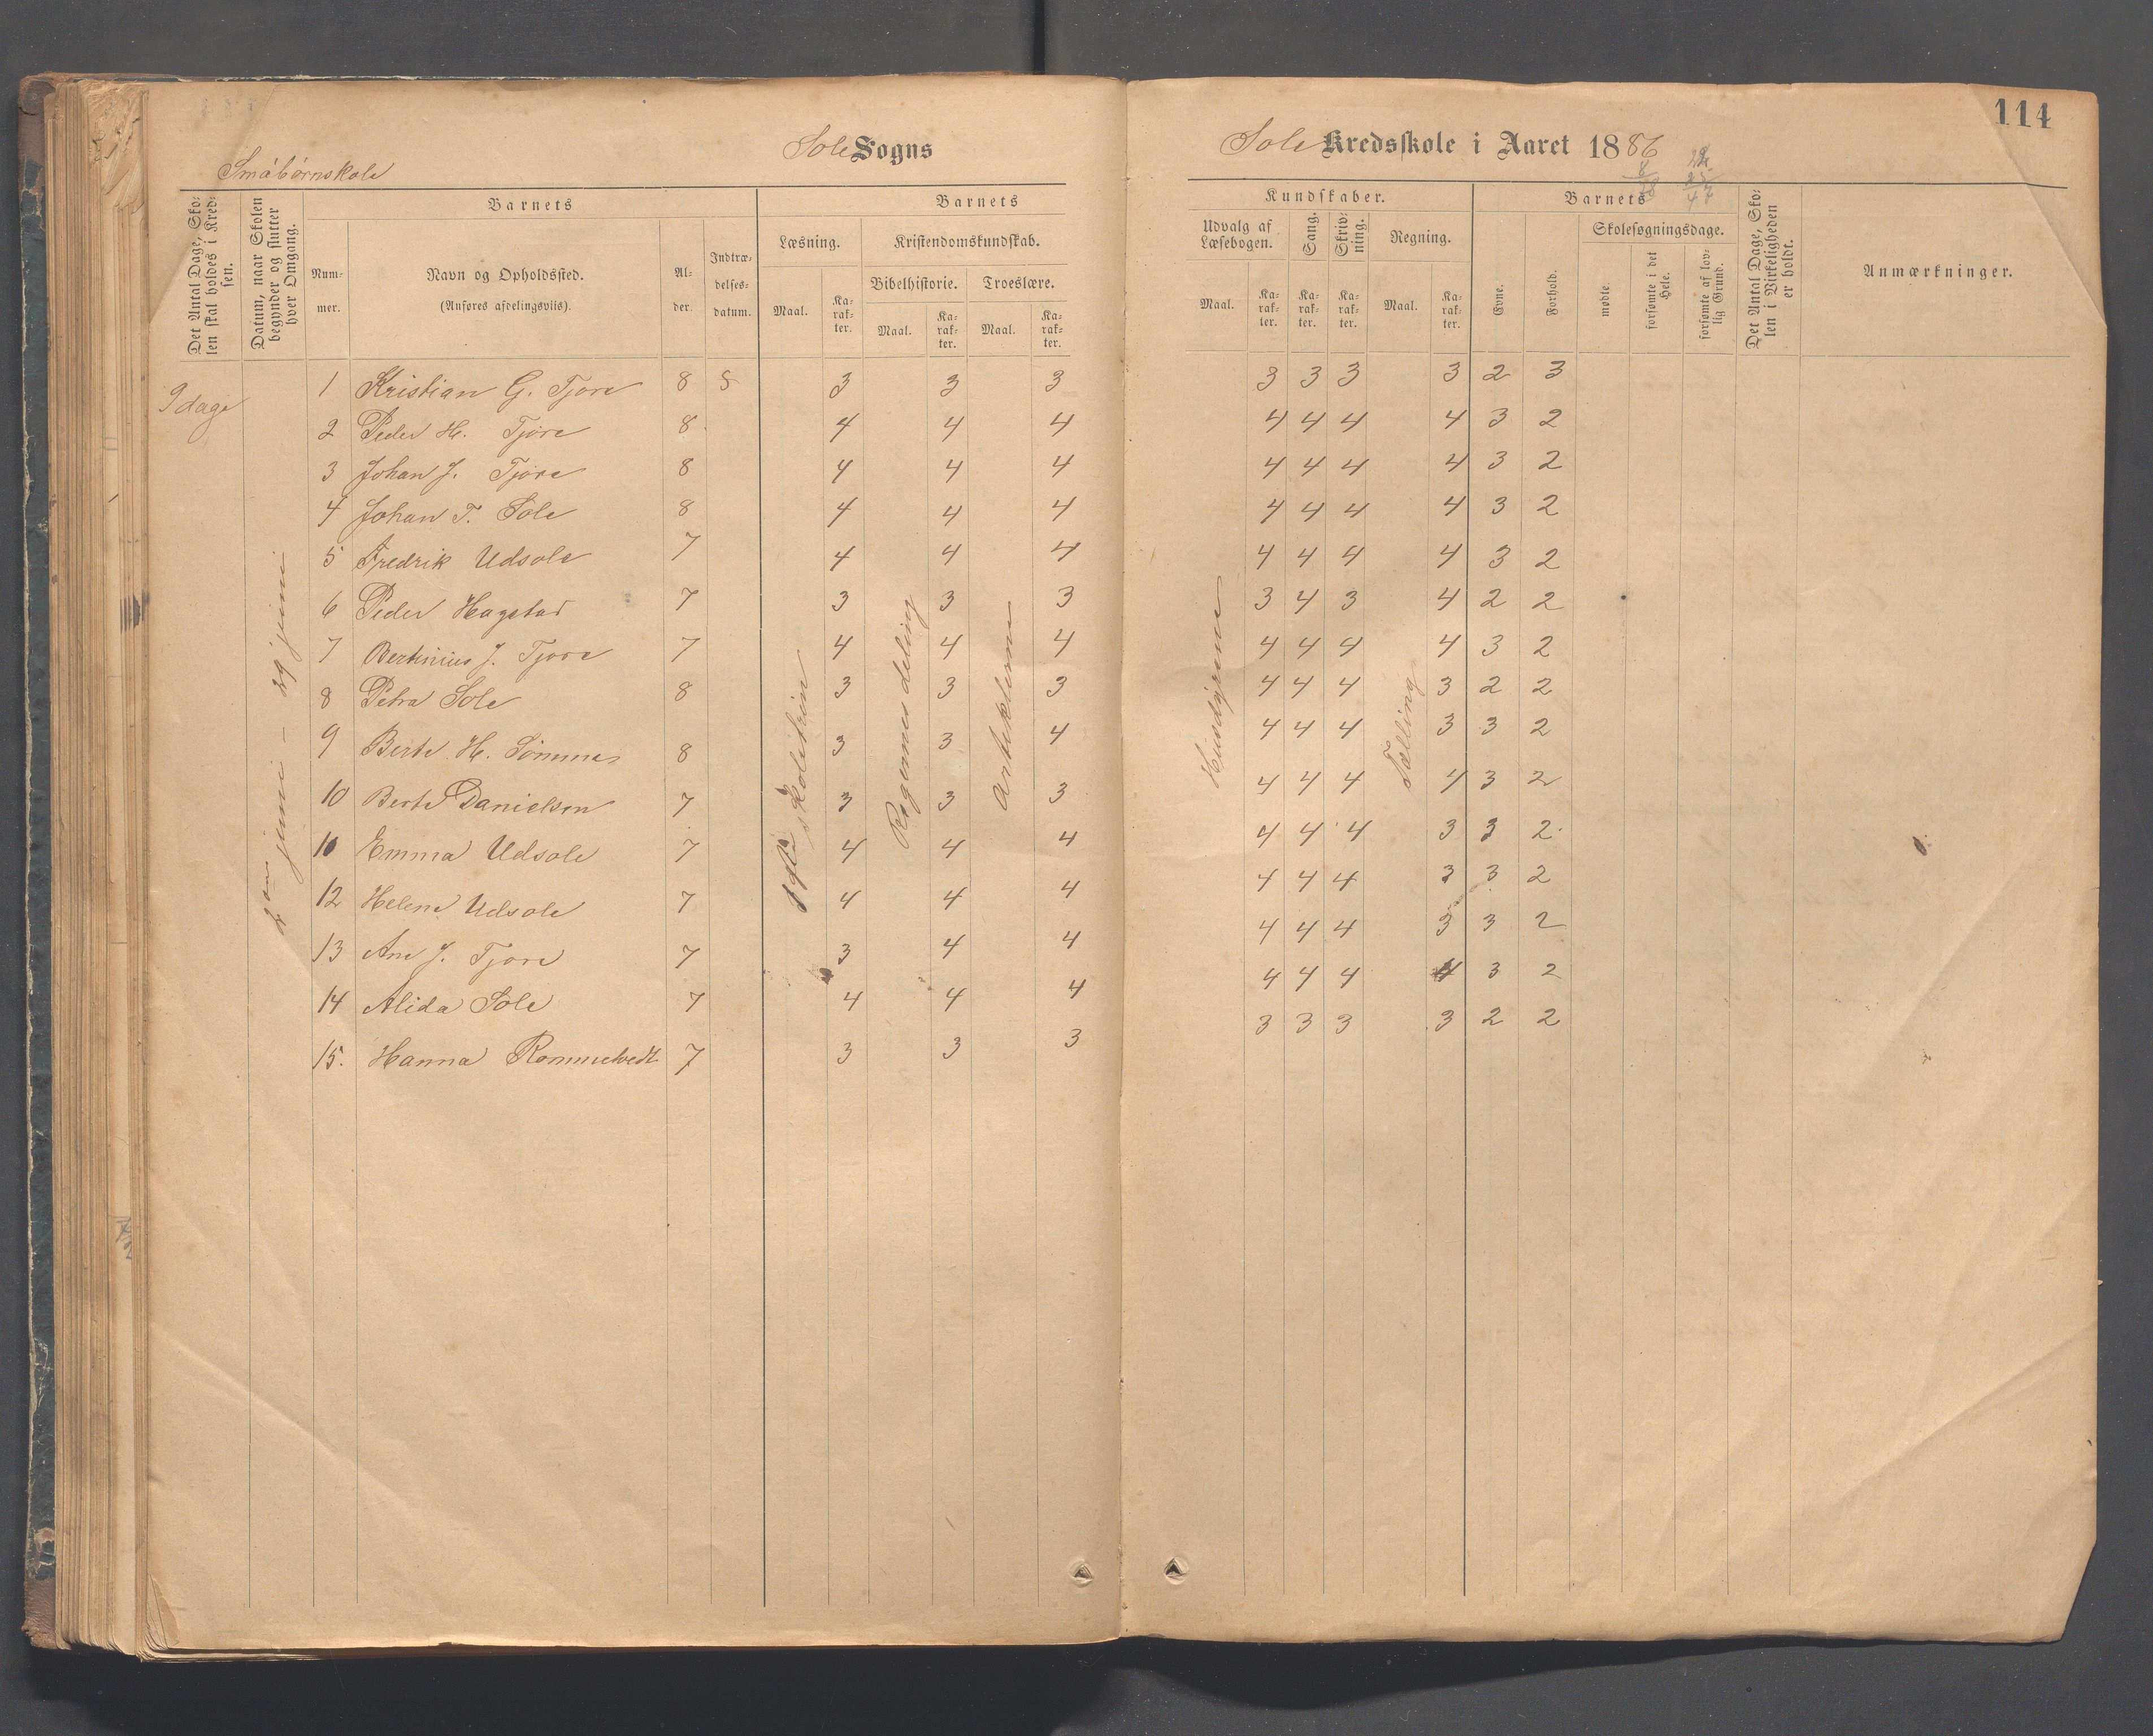 114
Sole Sogns
Sole Kredsskole i Aaret 1886
Småbørnskole
Det Antal Dage, Skolen skal holdes i Kredsen.
Datum, naar Skolen begynder og slutter hver Omgang.
Barnets
Nummer.
Navn og Opholdssted.
(Anføres afdelingsviis).
Alder.
Indtrædelsesdatum.
Barnets
Læsning.
Kristendomskundskab.
Bibelhistorie.
Troeslære.
Maal.
Karakter.
Maal.
Karakter.
Maal.
Karakter.
Kundskaber.
Udvalg af Læsebogen.
Sang.
Skrivning.
Regning.
Maal.
Karakter.
Karakter.
Karakter.
Maal.
Karakter.
Barnets
Evne.
Forhold.
Skolesøgningsdage.
mødte.
forsømte i det Hele.
forsømte af lovlig Grund.
Det Antal Dage, Skolen i Virkeligheden er holdt.
Anmærkninger.
9 dage
juni - 29 juni
1ste skoletrin
Artiklerne
Tælling
1 Kristian G. Tjore 8 3 3 3 3 3 3 3 2 3
2 Peder H. Tjore 8 4 4 4 4 4 4 4 3 2
3 Johan J. Tjore 8 4 4 4 4 4 4 4 3 2
4 Johan T. Sole 8 4 4 4 4 4 4 4 3 2
5 Fredrik Udsole 7 4 4 4 4 4 4 4 3 2
6 Peder Hagstad 7 3 3 3 3 4 3 4 2 2
7 Bertinius J. Tjore 7 4 4 4 4 4 4 4 3 2
8 Petra Sole 8 3 3 3 4 4 4 3 2 2
9 Berte H. Sømme 8 3 3 4 4 4 4 3 3 2
10 Berte Danielsen 7 3 3 3 4 4 4 4 3 2
10 Emma Udsole 7 4 4 4 4 4 4 3 3 2
12 Helene Udsole 7 4 4 4 4 4 4 3 3 2
13 Ane J. Tjore 7 3 4 4 4 4 4 3 3 2
14 Alida Sole 7 4 4 4 4 4 4 4 3 2
15. Hanna Rommetvedt 7 3 3 3 3 3 3 3 2 2